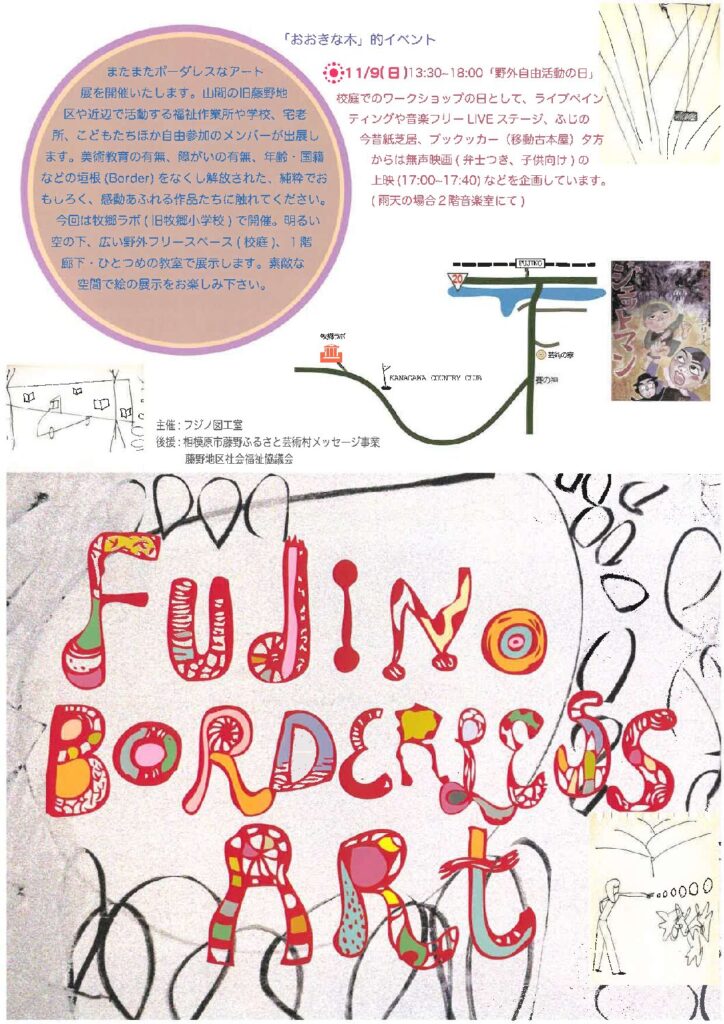 「おおきな木」的イベント
またまたボーダレスなアート
展を開催いたします。山間の旧藤野地
区や近辺で活動する福祉作業所や学校、宅老
所、こどもたちほか自由参加のメンバーが出展し
ます。美術教育の有無、障がいの有無、年齢・国籍
などの垣根(Border)をなくし解放された、純粋でお
もしろく、感動あふれる作品たちに触れてください。
今回は牧郷ラボ(旧牧郷小学校)で開催。明るい
空の下、広い野外フリースペース(校庭)、1階
廊下・ひとつめの教室で展示します。素敵な
空間で絵の展示をお楽しみ下さい。
11/9(日)13:30~18:00「野外自由活動の日」
校庭でのワークショップの日として、ライブペイン
ティングや音楽フリーLIVEステージ、ふじの
今昔紙芝居、ブックッカー(移動古本屋)夕方
からは無声映画(弁士つき、子供向け)の
上映(17:00~17:40)などを企画しています。
(雨天の場合2階音楽室にて)
FUJINO
20
牧郷ラボ
芸術の家
KANAGAWA COUNTRY CLUB
ジェットマン
主催:フジノ図工室
後援:相模原市藤野ふるさと芸術村メッセージ事業
藤野地区社会福祉協議会
FUJiNO
BORDERLESS
ARt